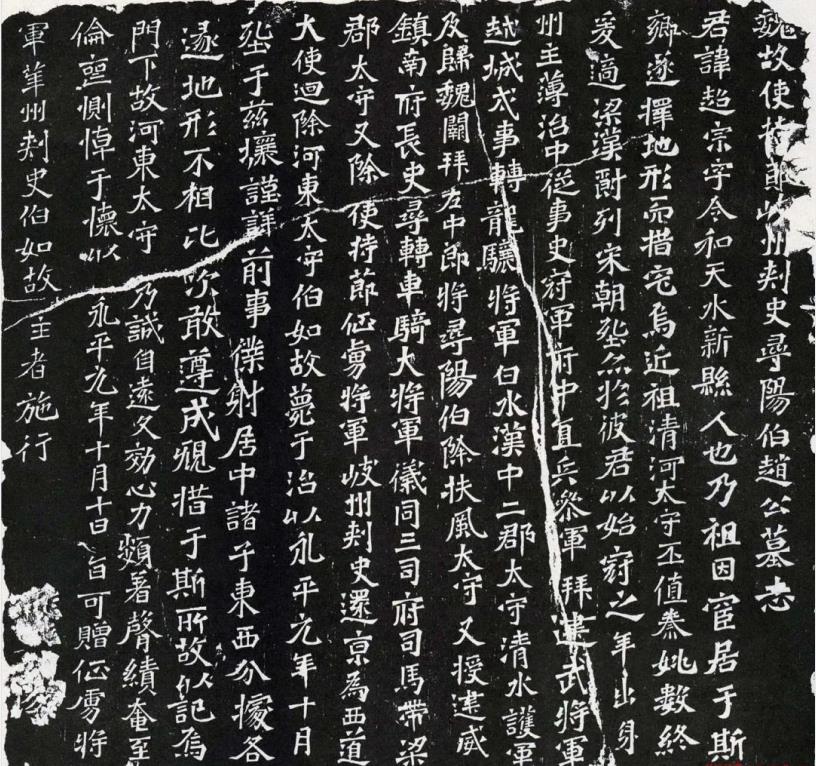 魏故使持節岐州刺史尋陽伯趙公墓志
君諱超宗字令和天水新縣人也乃祖因宦居于斯
鄉遂擇地形而措宅焉近祖清河太守丕值秦姚數終
爰適梁漢爵列宋朝塋於彼君以始冠之年出身
州主薄治中從事史府軍府中直兵參軍拜建武將軍
越城戍事轉龍驤將軍白水漢中二郡太守清水護軍
及歸魏闕拜左中郎將尋陽伯除扶風太守又授建威
鎮南府長史尋轉車騎大將軍儀同三司府司馬帶梁
郡太守又除使持節征虜將軍岐州刺史還京為西道
大使迴除河東太守伯如故薨于治以永平元年十月
塋于茲壤謹詳前事僕射居中諸子東西分據各
遂地形不相比次敢遵成規措于斯所故以記焉
門下故河東太守 乃誠自遠久効心力頻著聲績奄至
倫亡惻悼于懷以 永平元年十月十日 旨可贈征虜將
軍華州刺史伯如故主者施行